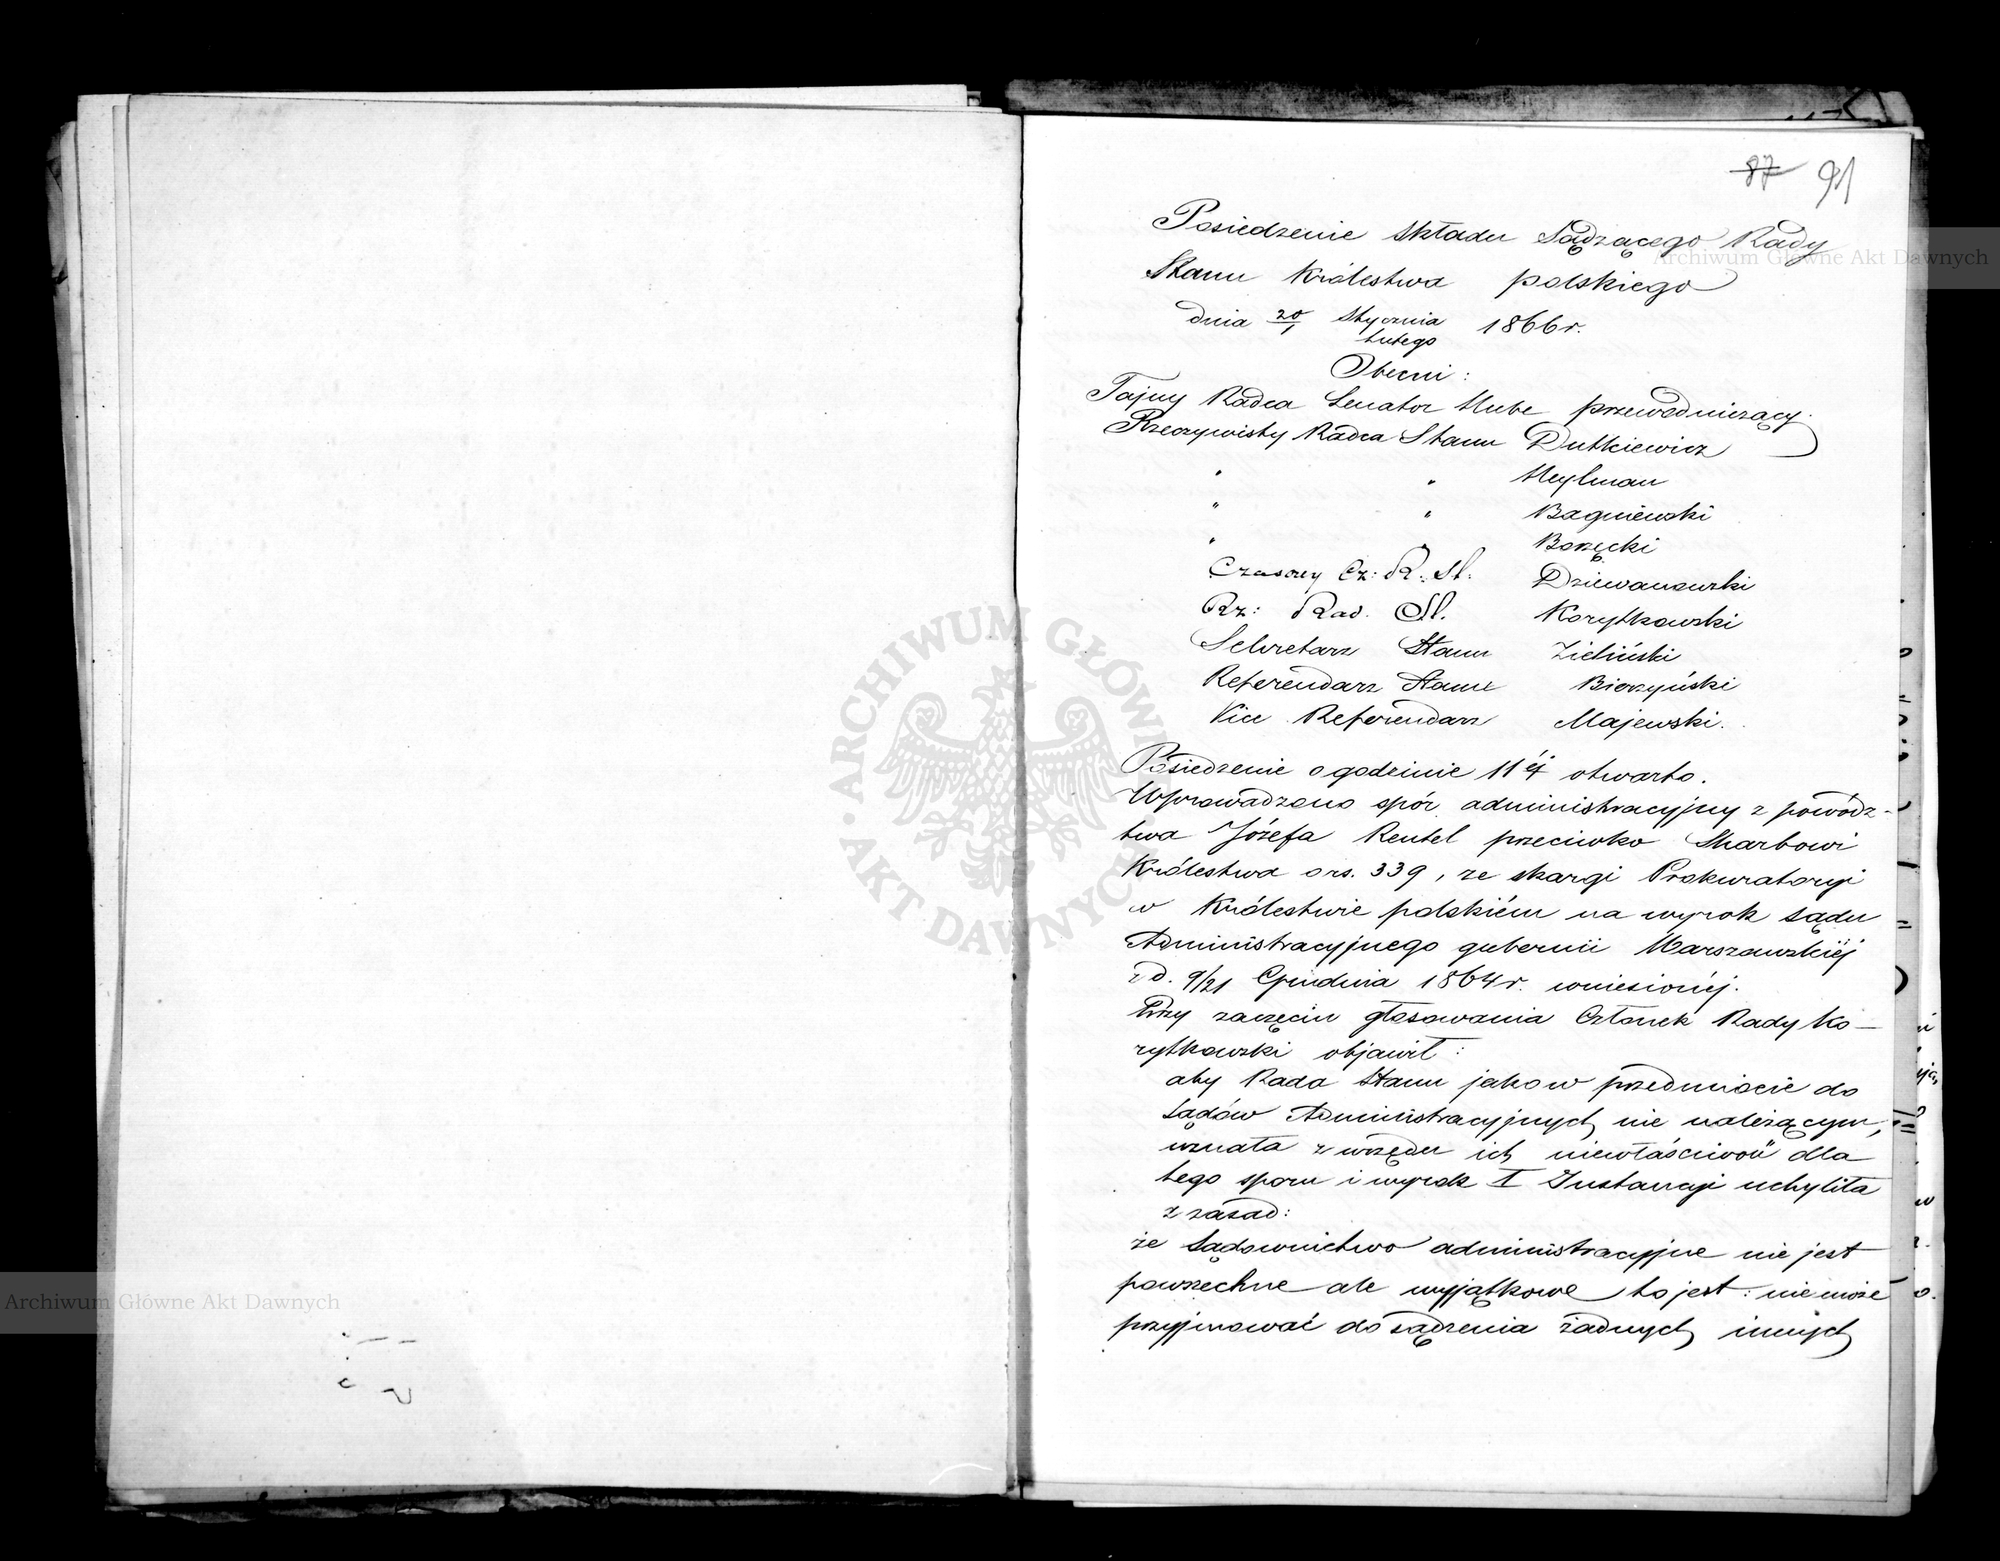 87 91
Posiedzenie Składu Sądzącego Rady
Stanu Królestwa polskiego
dnia 20/1 Stycznia/Lutego 1866 r.
Obecni:
Tajny Radca Senator Hube przewodniczący.
Rzeczywisty Radca Stanu Dutkiewicz
" " Heylman
" " Bagniewski
" Borzęcki
Czasowy Cz: R. St: Dziewanowski
Rz: Rad. St. Korytkowski
Sekretarz Stanu Zieliński
Referendarz Stanu Bierzyński
Vice Referendarz Majewski.
Posiedzenie o godzinie 11éj otwarto.
Wprowadzono spór administracyjny z powódz-
twa Józefa Rentel przeciwko Skarbowi
Królestwa ors. 339, ze skargi Prokuratoryi
w Królestwie polskiém na wyrok sądu
Administracyjnego gubernii Warszawskiéj
z d. 9/21 Grudnia 1864 r. wniesionéj.
Przy zaczęciu głosowania Członek Rady Ko-
rytkowski objawił:
aby Rada Stanu jako w przedmiocie do
Sądów Administracyjnych nie należącym,
uznała z urzędu ich niewłaściwość dla
tego sporu i wyrok I Instancyi uchyliła
z zasad:
że Sądownictwo administracyjne nie jest
powszechne ale wyjątkowe to jest: nie może
przyjmować do sądzenia żadnych innych
Archiwum Główne Akt Dawnych
Archiwum Główne Akt Dawnych
ARCHIWUM GŁÓWNE AKT DAWNYCH